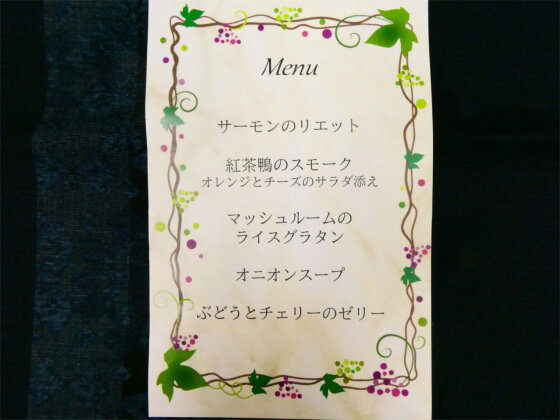 Menu
サーモンのリエット
紅茶鴨のスモーク
オレンジとチーズのサラダ添え
マッシュルームの
ライスグラタン
オニオンスープ
ぶどうとチェリーのゼリー